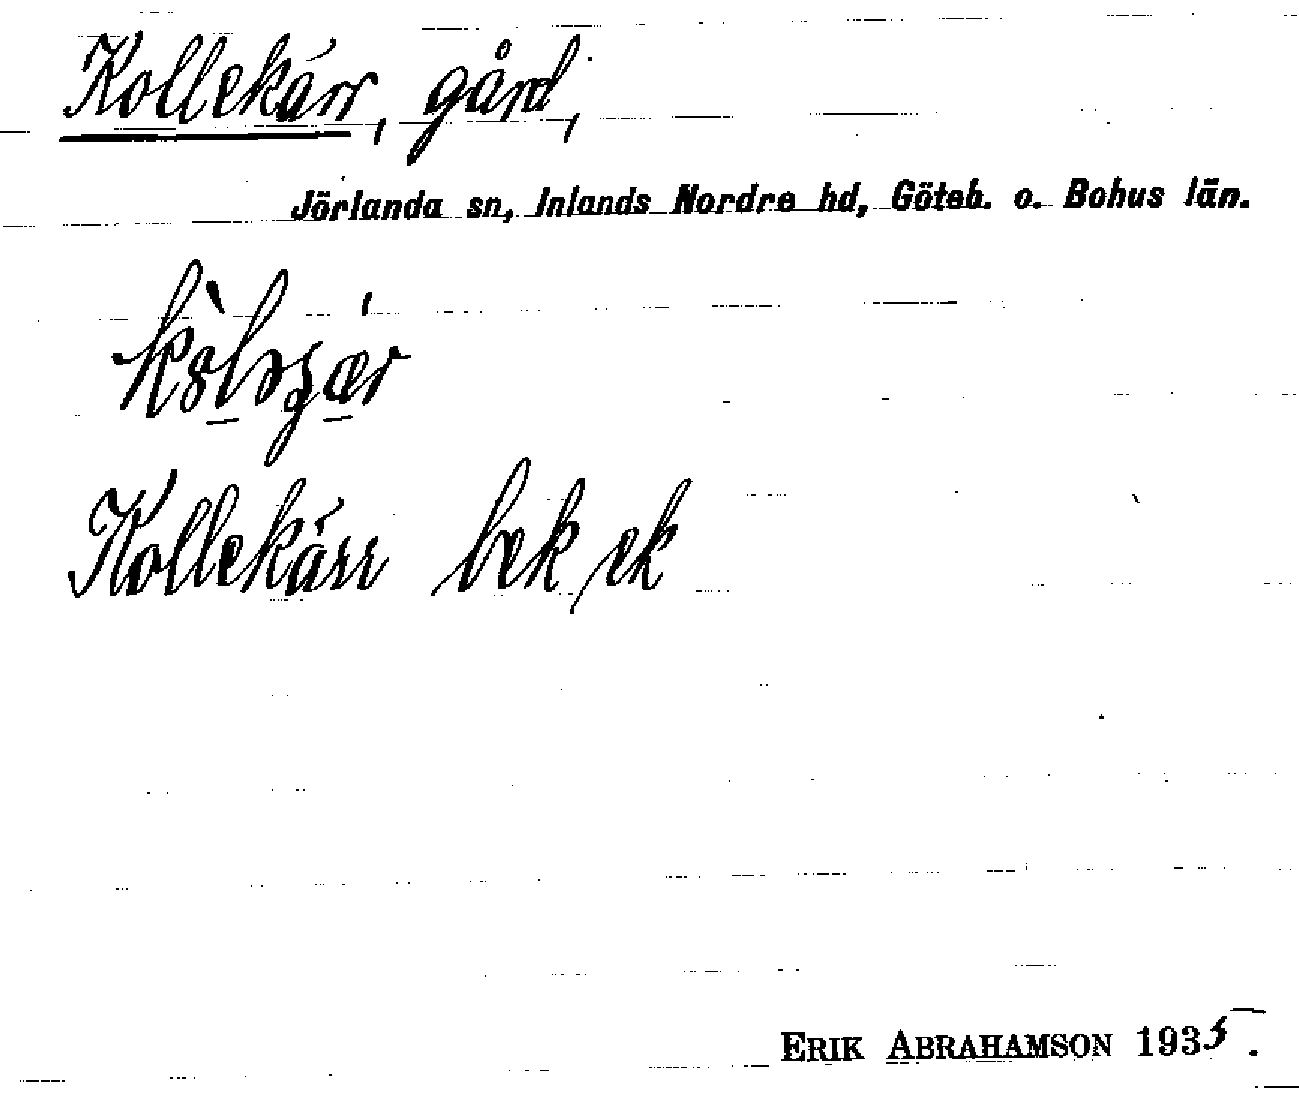 Kollekärr, gård,
Jörlanda sn, Inlands Nordre hd, Göteb. o. Bohus län.
Kollekärr bek ek
ERIK ABRAHAMSON 1935.